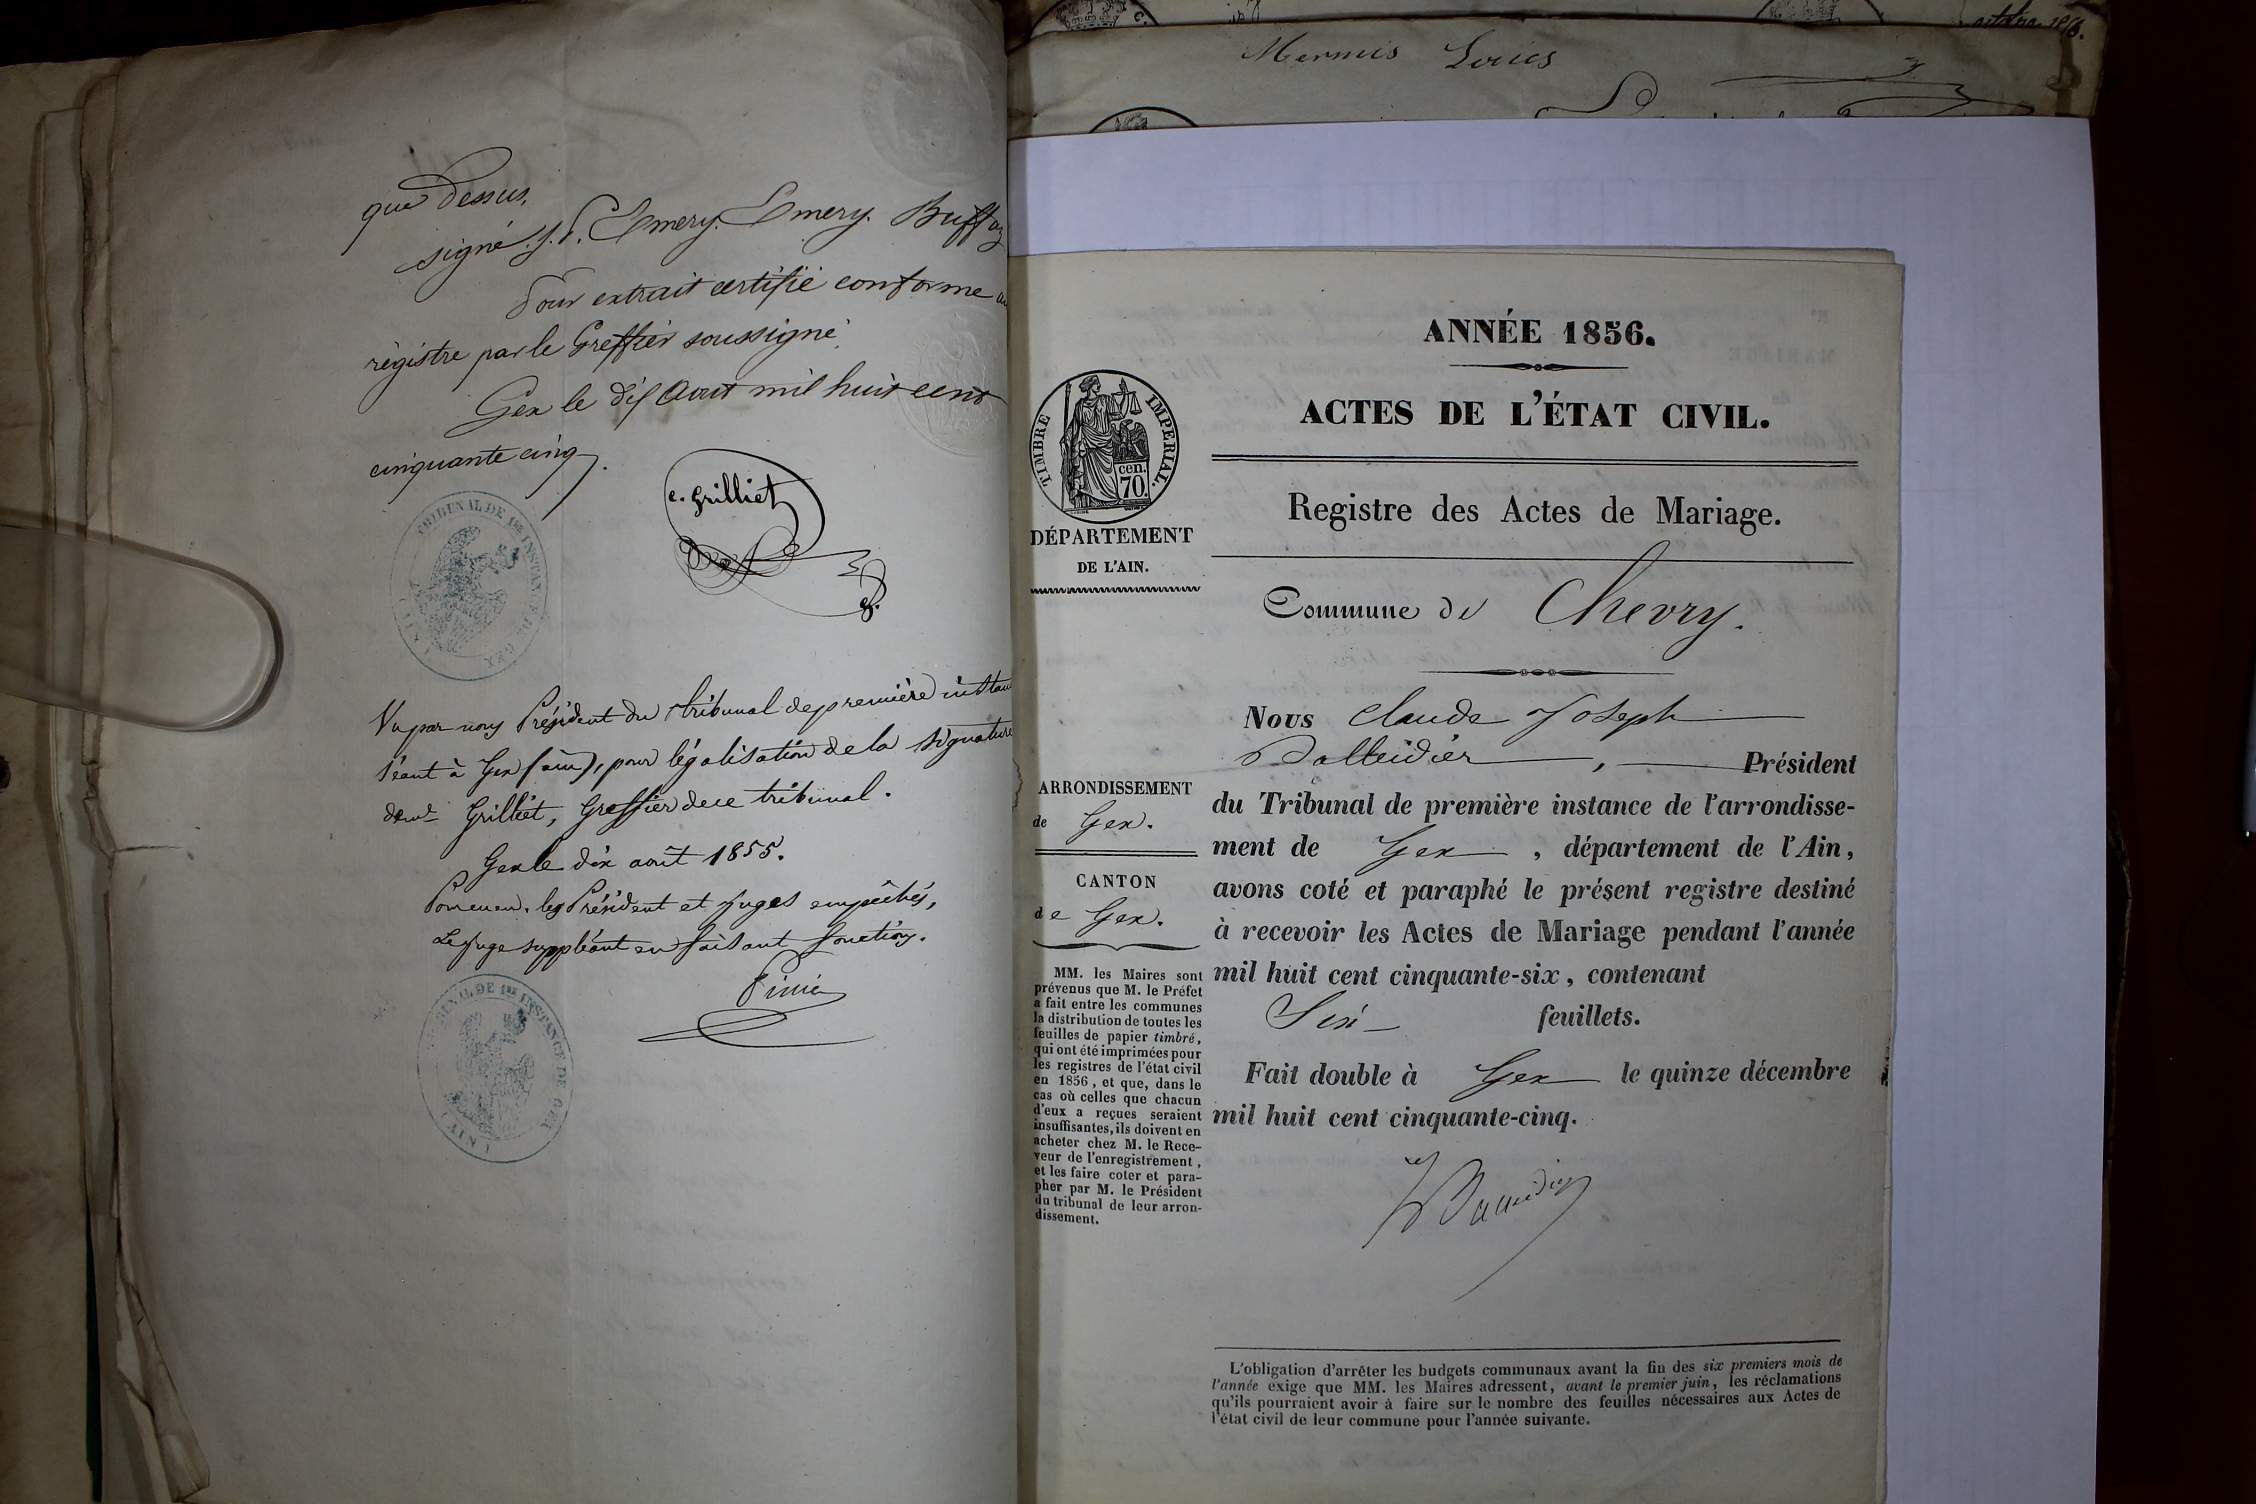 que dessus,
signé J. P. Emery. Emery. Buffaz
Pour extrait certifié conforme au
régistre par le Greffier soussigné.
Gex le dix Aout mil huit cent
cinquante cinq.
e. Grilliet
TRIBUNAL DE 1RE INSTANCE DE GEX
(AIN)
Vu par nous Président du tribunal de première instance
séant à Gex (ain), pour légalisation de la signature
de mr Grilliet, Greffier de ce tribunal.
Gex le dix août 1855.
les Président et juges empêchés,
Le juge suppléant en faisant fonction.
TRIBUNAL DE 1RE INSTANCE DE GEX
(AIN)
octobre 1856.
Mermis Louis
ANNÉE 1856.
ACTES DE L'ÉTAT CIVIL.
TIMBRE IMPERIAL.
cen.
70.
DÉPARTEMENT
DE L'AIN.
Registre des Actes de Mariage.
Commune de Chevry.
Nous Claude Joseph
Balleidier, Président
du Tribunal de première instance de l'arrondisse-
ment de Gex, département de l'Ain,
avons coté et paraphé le présent registre destiné
à recevoir les Actes de Mariage pendant l'année
mil huit cent cinquante-six, contenant
Six feuillets.
Fait double à Gex le quinze décembre
mil huit cent cinquante-cinq.
ARRONDISSEMENT
de Gex.
CANTON
de Gex.
MM. les Maires sont
prévenus que M. le Préfet
a fait entre les communes
la distribution de toutes les
feuilles de papier timbré,
qui ont été imprimées pour
les registres de l'état civil
en 1856, et que, dans le
cas où celles que chacun
d'eux a reçues seraient
insuffisantes, ils doivent en
acheter chez M. le Rece-
veur de l'enregistrement,
et les faire coter et para-
pher par M. le Président
du tribunal de leur arron-
dissement.
L'obligation d'arrêter les budgets communaux avant la fin des six premiers mois de
l'année exige que MM. les Maires adressent, avant le premier juin, les réclamations
qu'ils pourraient avoir à faire sur le nombre des feuilles nécessaires aux Actes de
l'état civil de leur commune pour l'année suivante.